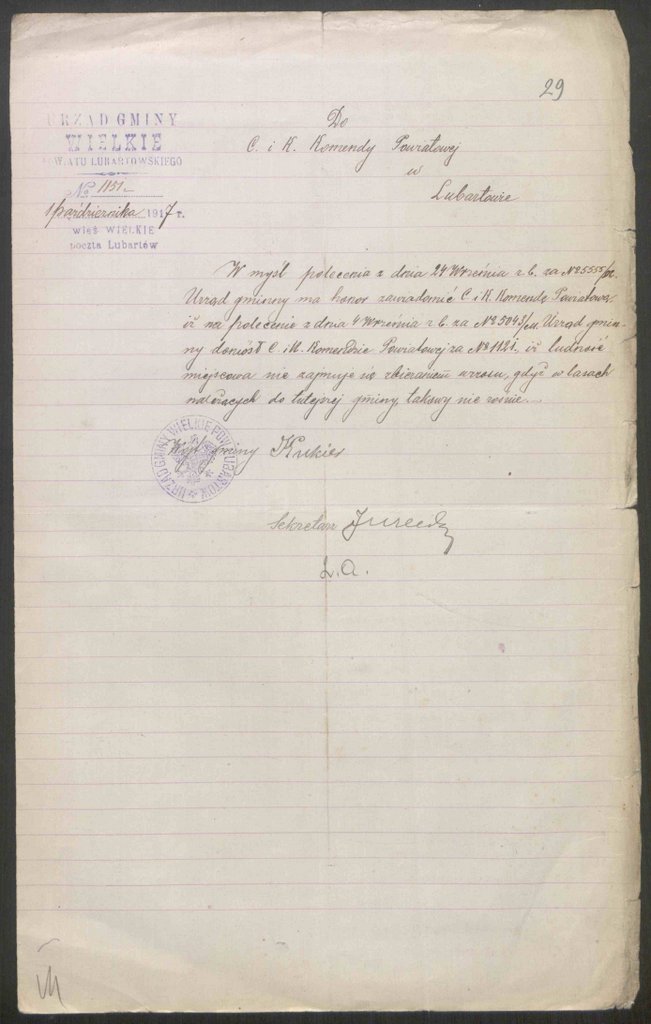 29
URZĄD GMINY
WIELKIE
POWIATU LUBARTOWSKIEGO
№ 1151
1 Października 1917 r.
wieś WIELKIE
poczta Lubartów
Do
C. i K. Komendy Powiatowej
w
Lubartowie
W myśl polecenia z dnia 24 Września r. b. za № 5555/
Urząd gminny ma honor zawiadomić C i K. Komendę Powiatową,
iż na polecenie z dnia 4 Września r. b. za № 5043/ Urząd gmin-
ny doniósł C. i K. Komendzie Powiatowej za № 1121, iż ludność
miejscowa nie zajmuje się zbieraniem wrzosu, gdyż w lasach
należących do tutejszej gminy takowy nie rośnie.
Wójt gminy Kukier
URZĄD GMINY WIELKIE POW. LUBARTOW
Sekretarz
L. A.